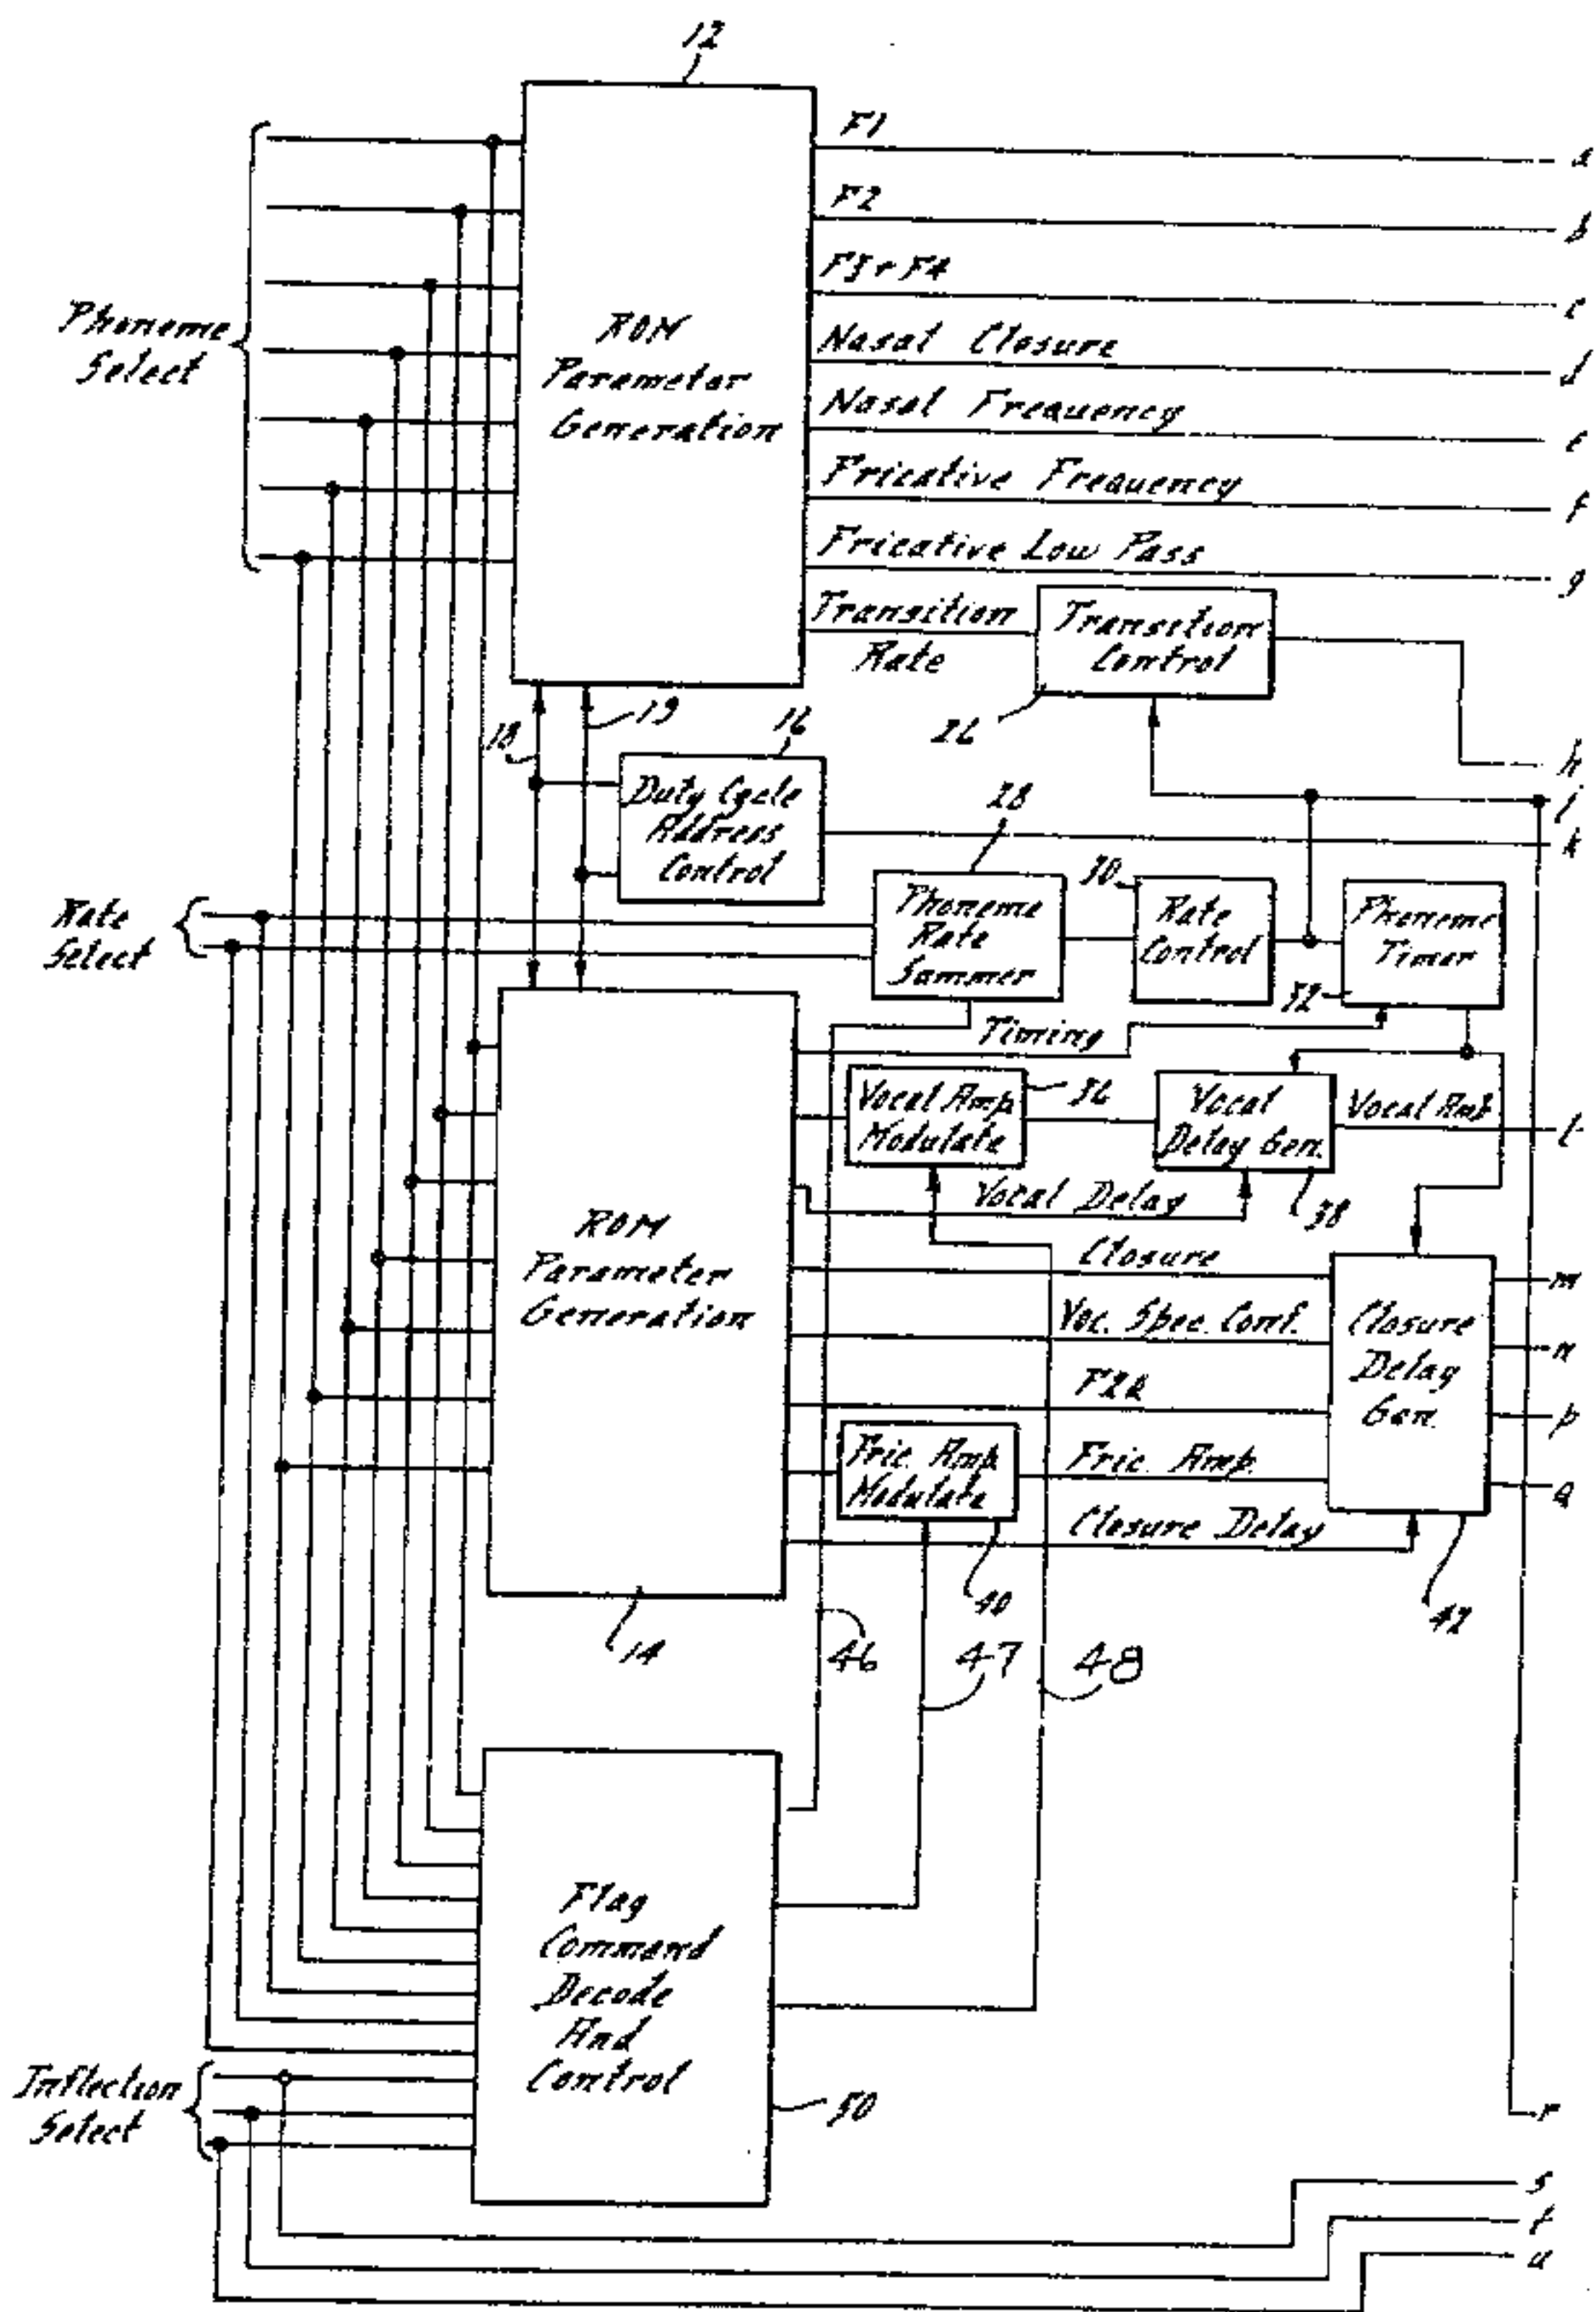 12
F1
a
F2
b
F3 + F4
c
Phoneme
Select
ROM
Parameter
Generation
Nasal Closure
d
Nasal Frequency
e
Fricative Frequency
f
Fricative Low Pass
g
Transition
Rate
Transition
Control
26
h
18
19
16
Duty Cycle
Address
Control
j
k
28
Rate
Select
Phoneme
Rate
Summer
30
Rate
Control
Phoneme
Timer
32
Timing
Vocal Amp
Modulate
36
Vocal
Delay Gen.
Vocal Amp
l
38
Vocal Delay
ROM
Parameter
Generation
Closure
m
Voc. Spec. Cont.
n
Closure
Delay
Gen.
F2Q
p
Fric. Amp
Modulate
Fric. Amp.
q
Closure Delay
40
42
14
46
47
48
Flag
Command
Decode
And
Control
50
Inflection
Select
r
s
t
u